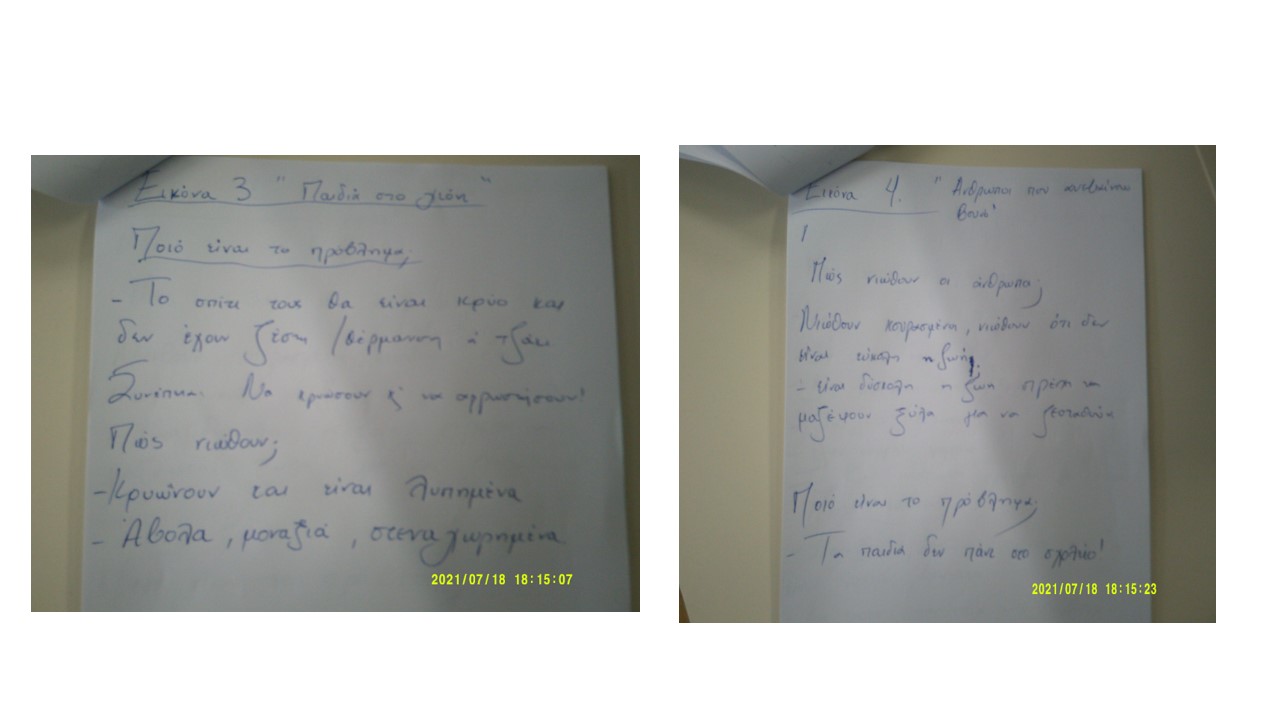 Εικόνα 3 " Παιδιά στο χιόνι "
Ποιό είναι το πρόβλημα;
- Το σπίτι τους θα είναι κρύο και
δεν έχουν ζέστη / θέρμανση ή τζάκι
Συνέπεια: Να κρυώσουν & να αρρωστήσουν!
Πώς νιώθουν;
- Κρυώνουν και είναι λυπημένα
- Άβολα , μοναξιά , στεναχωρημένα
2021/07/18 18:15:07
Εικόνα 4. " Άνθρωποι που κατεβαίνουν
βουνό"
Πώς νιώθουν οι άνθρωποι;
Νιώθουν κουρασμένοι, νιώθουν ότι δεν
είναι εύκολη η ζωή
- είναι δύσκολη η ζωή πρέπει να
μαζέψουν ξύλα για να ζεσταθούν
Ποιό είναι το πρόβλημα;
- Τα παιδιά δεν πάνε στο σχολείο!
2021/07/18 18:15:23